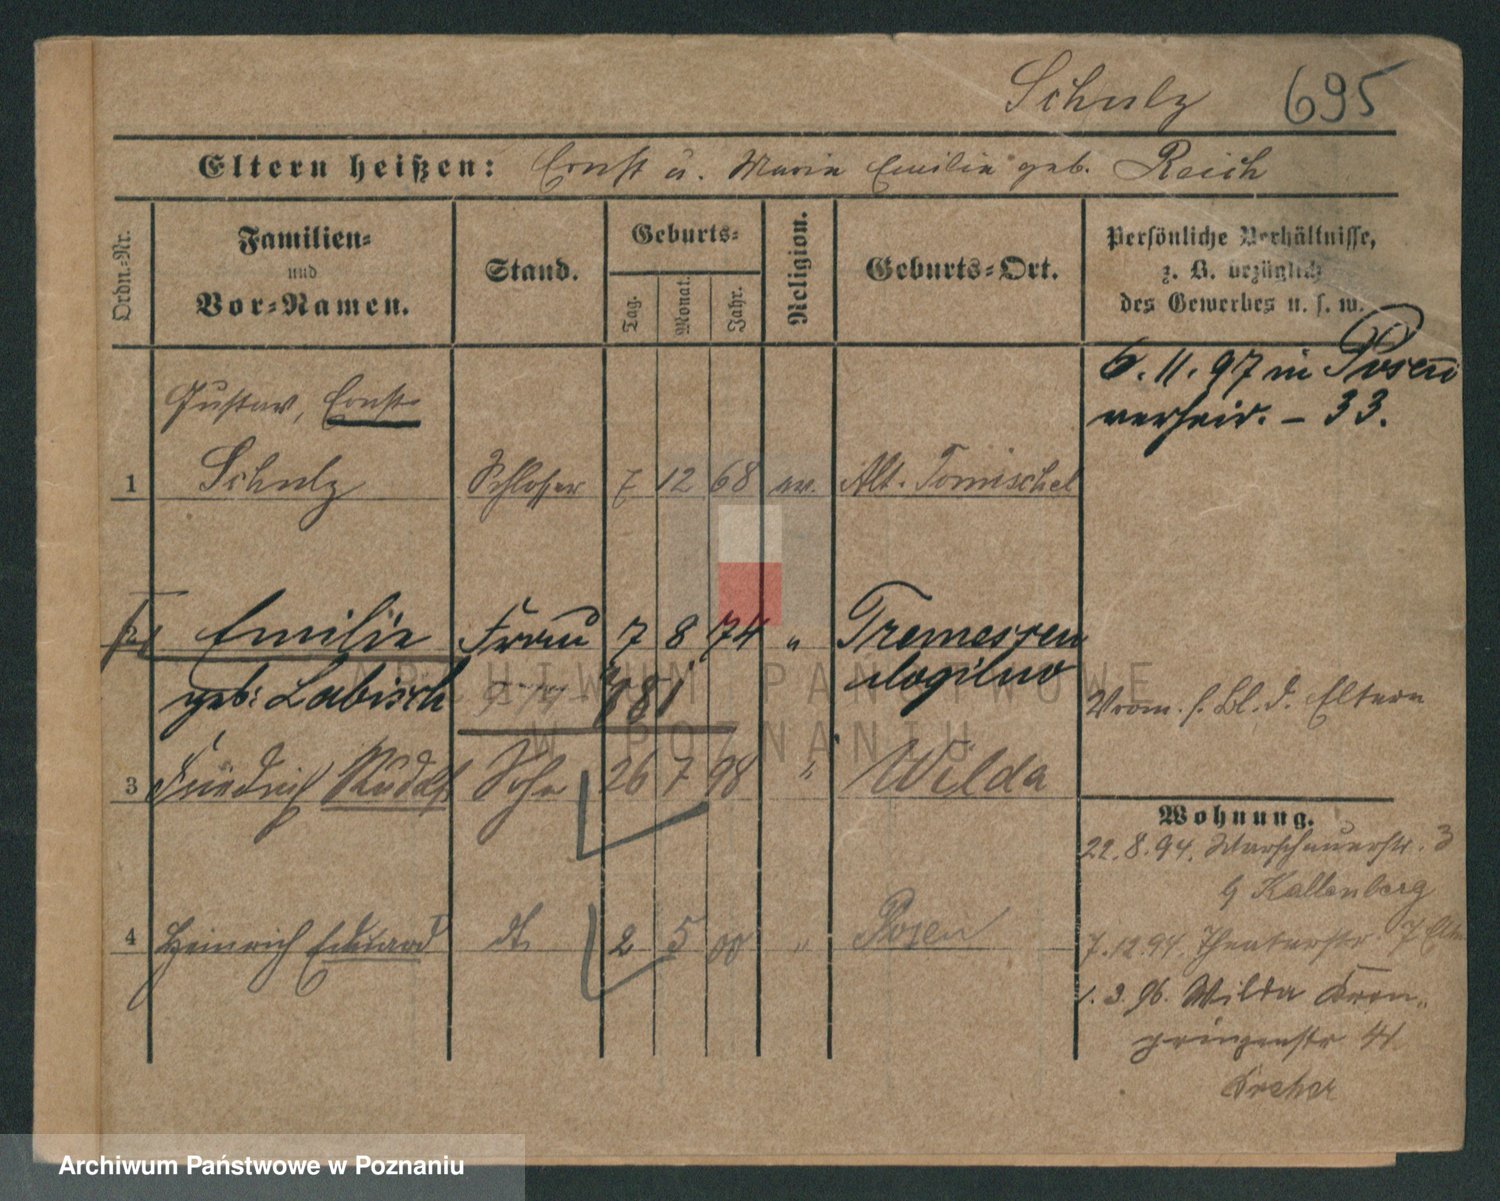 Schulz 695
Eltern heißen: Ernst u. Maria Emilie geb. Reich
Ordn.-Nr.
Familien-
und
Vor-Namen.
Stand.
Geburts-
Tag.
Monat.
Jahr.
Religion.
Geburts-Ort.
Persönliche Verhältnisse,
z. B. bezüglich
des Gewerbes u. s. w.
6.11.97 in Posen
verheir. – 33.
Gustav, Ernst
1 Schulz Schlosser 7 12 68 ev. Alt-Tomischel
2 Emilie Frau 7 8 74 " Tremessen
geb: Labisch 81 Mogilno
s. Bl. d. Eltern
3 Friedrich Rudolf Sohn 26 7 98 " Wilda
4 Heinrich Eduard dto 2 5 00 " Posen
Wohnung.
22.8.94. Warschauerstr. 3
b/ Kallenberg
7.12.94. Theaterstr. 7
1.3.96. Wilda Kron-
prinzenstr
Kreher
ARCHIWUM PAŃSTWOWE
W POZNANIU
Archiwum Państwowe w Poznaniu